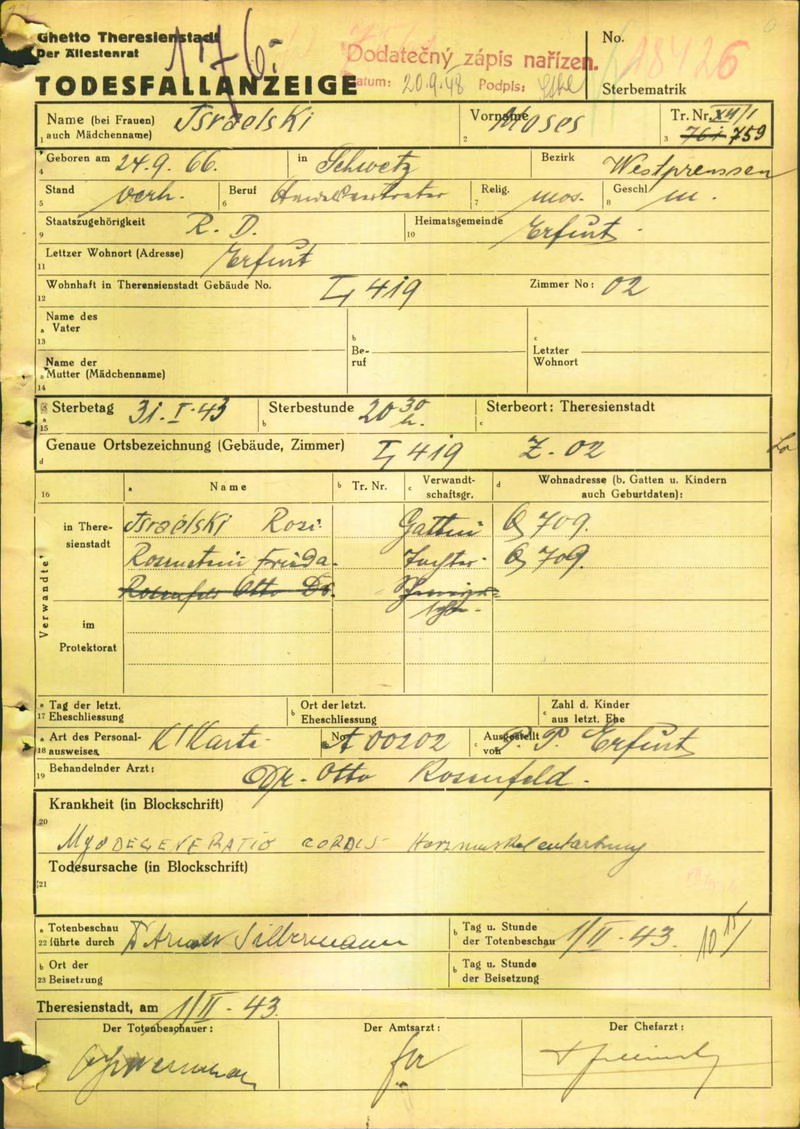 Ghetto Theresienstadt
Der Ältestenrat
TODESFALLANZEIGE
Dodatečný zápis nařízen.
Datum: 20.9.48 Podpis:
No. 18426
Sterbematrik
Name (bei Frauen) Israelski
1 auch Mädchenname)
Vorname Moses
2
Tr. Nr. XVI/1
3 761 759
Geboren am 24.9.66. in Schwetz Bezirk Westpreussen
4
Stand verh. Beruf Relig. mos. Geschl m.
5 6 7 8
Staatszugehörigkeit R. D. Heimatsgemeinde Erfurt.
9 10
Lettzer Wohnort (Adresse) Erfurt
11
Wohnhaft in Theresienstadt Gebäude No. L 419 Zimmer No: 02
12
Name des
a Vater
13
b Beruf
c Letzter Wohnort
Name der
a Mutter (Mädchenname)
14
Sterbetag 31.I.43 Sterbestunde 20 30 h. Sterbeort: Theresienstadt
a 15 b c
Genaue Ortsbezeichnung (Gebäude, Zimmer) L 419 Z. 02
d
16 a Name b Tr. Nr. c Verwandtschaftsgr. d Wohnadresse (b. Gatten u. Kindern auch Geburtdaten):
Verwandte
in Theresienstadt
Israelski Rosi Gattin Q 709.
Rosenstein Frieda. Tochter. Q 709.
Rosenfeld Otto Dr.
im
Protektorat
a Tag der letzt.
17 Eheschliessung
b Ort der letzt. Eheschliessung
c Zahl d. Kinder aus letzt. Ehe
a Art des Personal-
18 ausweises K'Karte No A 00202 c Ausgestellt von P. P. Erfurt
Behandelnder Arzt: Dr. Otto Rosenfeld.
19
Krankheit (in Blockschrift)
20
MYODEGENERATIO CORDIS Herzmuskelentartung
Todesursache (in Blockschrift)
21
a Totenbeschau
22 führte durch Silbermann
b Tag u. Stunde der Totenbeschau 1/II.43. 10 15/
b Ort der
23 Beisetzung
b Tag u. Stunde der Beisetzung
Theresienstadt, am 1/II.43
Der Totenbeschauer: Der Amtsarzt: Der Chefarzt: